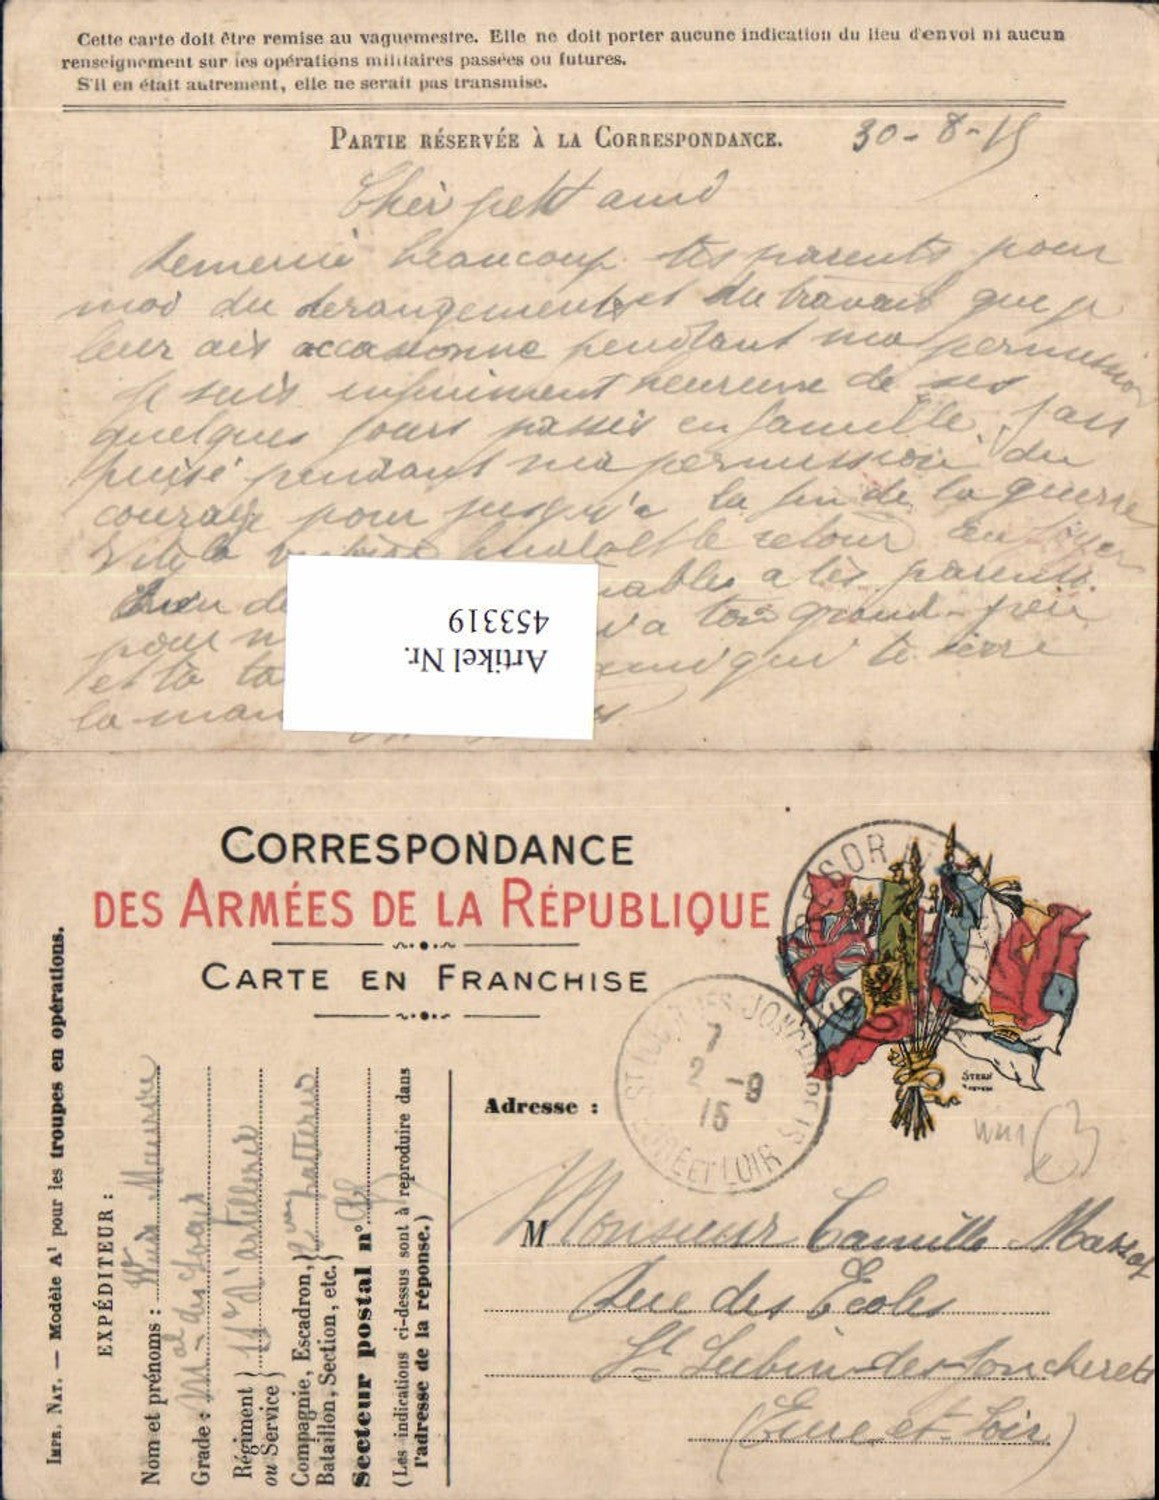 Cette carte doit être remise au vaguemestre. Elle ne doit porter aucune indication du lieu d'envoi ni aucun
renseignement sur les opérations militaires passées ou futures.
S'il en était autrement, elle ne serait pas transmise.
PARTIE RÉSERVÉE À LA CORRESPONDANCE.
30-8-15
Cher petit ami
Remercie beaucoup tes parents pour
moi du derangement et du travail que je
leur ais occasionne pendant ma permission
Je suis infiniment heureux de ses
quelques jours passés en famille. J'ais
puisé pendant ma permission du
courage pour jusqu'a la fin de la guerre
Vive la le retour au foyer
Bien de a tes parents
pour n grand-père
et a ta ami qui te serre
la main
Artikel Nr.
453319
CORRESPONDANCE
DES ARMÉES DE LA RÉPUBLIQUE
CARTE EN FRANCHISE
IMPR. NAT. — Modèle A¹ pour les troupes en opérations.
EXPÉDITEUR :
Nom et prénoms : Maurice
Grade : Mal des Logis
Régiment ou Service } 11e d'artillerie
Compagnie, Escadron, Bataillon, Section, etc. } batterie
Secteur postal n°
(Les indications ci-dessus sont à reproduire dans
l'adresse de la réponse.)
TRESOR
7
2 -9
15
EURE ET LOIR
STERN
WW1
Adresse :
M Monsieur Camille Massot
Rue des Ecoles
St Lubin-des-Joncherets
(Eure-et-Loir)